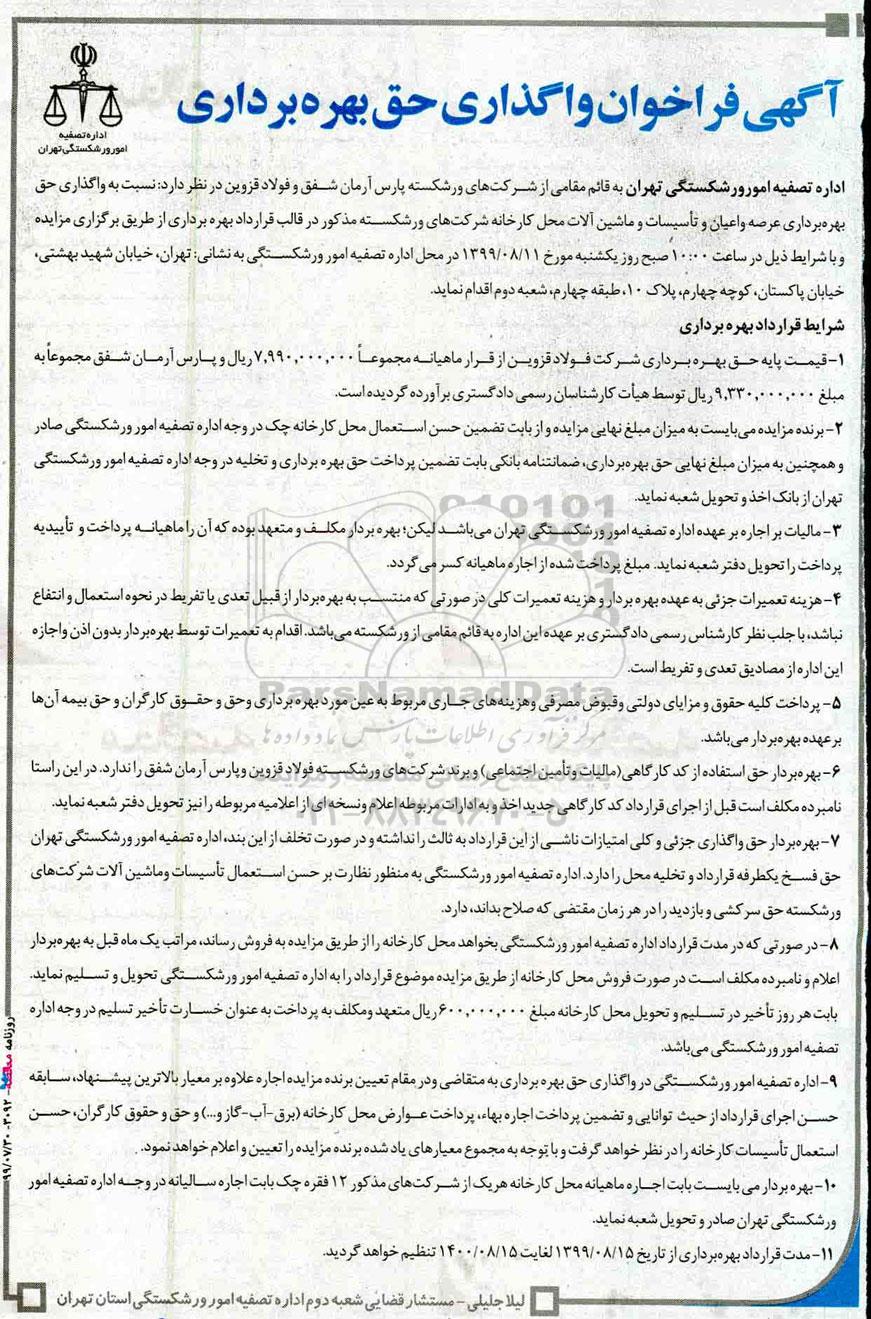 آگهی فراخوان واگذاری حق بهره برداری
اداره تصفیه
امور ورشکستگی تهران
اداره تصفیه امور ورشکستگی تهران به قائم مقامی از شرکت‌های ورشکسته پارس آرمان شفق و فولاد قزوین در نظر دارد: نسبت به واگذاری حق
بهره‌برداری عرصه واعیان و تأسیسات و ماشین آلات محل کارخانه شرکت‌های ورشکسته مذکور در قالب قرارداد بهره برداری از طریق برگزاری مزایده
و با شرایط ذیل در ساعت ۱۰:۰۰ صبح روز یکشنبه مورخ ۱۳۹۹/۰۸/۱۱ در محل اداره تصفیه امور ورشکستگی به نشانی: تهران، خیابان شهید بهشتی،
خیابان پاکستان، کوچه چهارم، پلاک ۱۰، طبقه چهارم، شعبه دوم اقدام نماید.
شرایط قرارداد بهره برداری
۱- قیمت پایه حق بهره برداری شرکت فولاد قزوین از قرار ماهیانه مجموعاً ۷,۹۹۰,۰۰۰,۰۰۰ ریال و پارس آرمان شفق مجموعاً به
مبلغ ۹,۳۳۰,۰۰۰,۰۰۰ ریال توسط هیأت کارشناسان رسمی دادگستری برآورده گردیده است.
۲- برنده مزایده می‌بایست به میزان مبلغ نهایی مزایده و از بابت تضمین حسن استعمال محل کارخانه چک در وجه اداره تصفیه امور ورشکستگی صادر
و همچنین به میزان مبلغ نهایی حق بهره‌برداری، ضمانتنامه بانکی بابت تضمین پرداخت حق بهره برداری و تخلیه در وجه اداره تصفیه امور ورشکستگی
تهران از بانک اخذ و تحویل شعبه نماید.
۳- مالیات بر اجاره بر عهده اداره تصفیه امور ورشکستگی تهران می‌باشد لیکن؛ بهره بردار مکلف و متعهد بوده که آن را ماهیانه پرداخت و تأییدیه
پرداخت را تحویل دفتر شعبه نماید. مبلغ پرداخت شده از اجاره ماهیانه کسر می گردد.
۴- هزینه تعمیرات جزئی به عهده بهره بردار و هزینه تعمیرات کلی در صورتی که منتسب به بهره‌بردار از قبیل تعدی یا تفریط در نحوه استعمال و انتفاع
نباشد، با جلب نظر کارشناس رسمی دادگستری بر عهده این اداره به قائم مقامی از ورشکسته می‌باشد. اقدام به تعمیرات توسط بهره‌بردار بدون اذن واجازه
این اداره از مصادیق تعدی و تفریط است.
۵- پرداخت کلیه حقوق و مزایای دولتی وقبوض مصرفی وهزینه‌های جاری مربوط به عین مورد بهره برداری وحق و حقوق کارگران و حق بیمه آن‌ها
بر عهده بهره‌بردار می‌باشد.
۶- بهره‌بردار حق استفاده از کد کارگاهی (مالیات وتأمین اجتماعی) و برند شرکت‌های ورشکسته فولاد قزوین و پارس آرمان شفق را ندارد. در این راستا
نامبرده مکلف است قبل از اجرای قرارداد کد کارگاهی جدید اخذ و به ادارات مربوطه اعلام و نسخه ای از اعلامیه مربوطه را نیز تحویل دفتر شعبه نماید.
۷- بهره‌بردار حق واگذاری جزئی و کلی امتیازات ناشی از این قرارداد به ثالث را نداشته و در صورت تخلف از این بند، اداره تصفیه امور ورشکستگی تهران
حق فسخ یکطرفه قرارداد و تخلیه محل را دارد. اداره تصفیه امور ورشکستگی به منظور نظارت بر حسن استعمال تأسیسات وماشین آلات شرکت‌های
ورشکسته حق سرکشی و بازدید را در هر زمان مقتضی که صلاح بداند، دارد.
۸- در صورتی که در مدت قرارداد اداره تصفیه امور ورشکستگی بخواهد محل کارخانه را از طریق مزایده به فروش رساند، مراتب یک ماه قبل به بهره‌بردار
اعلام و نامبرده مکلف است در صورت فروش محل کارخانه از طریق مزایده موضوع قرارداد را به اداره تصفیه امور ورشکستگی تحویل و تسلیم نماید.
بابت هر روز تأخیر در تسلیم و تحویل محل کارخانه مبلغ ۶۰۰,۰۰۰,۰۰۰ ریال متعهد ومکلف به پرداخت به عنوان خسارت تأخیر تسلیم در وجه اداره
تصفیه امور ورشکستگی می‌باشد.
۹- اداره تصفیه امور ورشکستگی در واگذاری حق بهره برداری به متقاضی ودر مقام تعیین برنده مزایده اجاره علاوه بر معیار بالاترین پیشنهاد، سابقه
حسن اجرای قرارداد از حیث توانایی و تضمین پرداخت اجاره بهاء، پرداخت عوارض محل کارخانه (برق-آب-گاز و...) و حق و حقوق کارگران، حسن
استعمال تأسیسات کارخانه را در نظر خواهد گرفت و با توجه به مجموع معیارهای یاد شده برنده مزایده را تعیین و اعلام خواهد نمود.
۱۰- بهره بردار می بایست بابت اجاره ماهیانه محل کارخانه هریک از شرکت‌های مذکور ۱۲ فقره چک بابت اجاره سالیانه در وجه اداره تصفیه امور
ورشکستگی تهران صادر و تحویل شعبه نماید.
۱۱- مدت قرارداد بهره‌برداری از تاریخ ۱۳۹۹/۰۸/۱۵ لغایت ۱۴۰۰/۰۸/۱۵ تنظیم خواهد گردید.
لیلا جلیلی - مستشار قضایی شعبه دوم اداره تصفیه امور ورشکستگی استان تهران
روزنامه - ۳۰۹۲ - ۹۹/۰۷/۳۰
ParsNamadData
مرکز فرآوری اطلاعات پارس نماد داده ها
۰۲۱-۸۸۳۴۹۶۷۰-۵